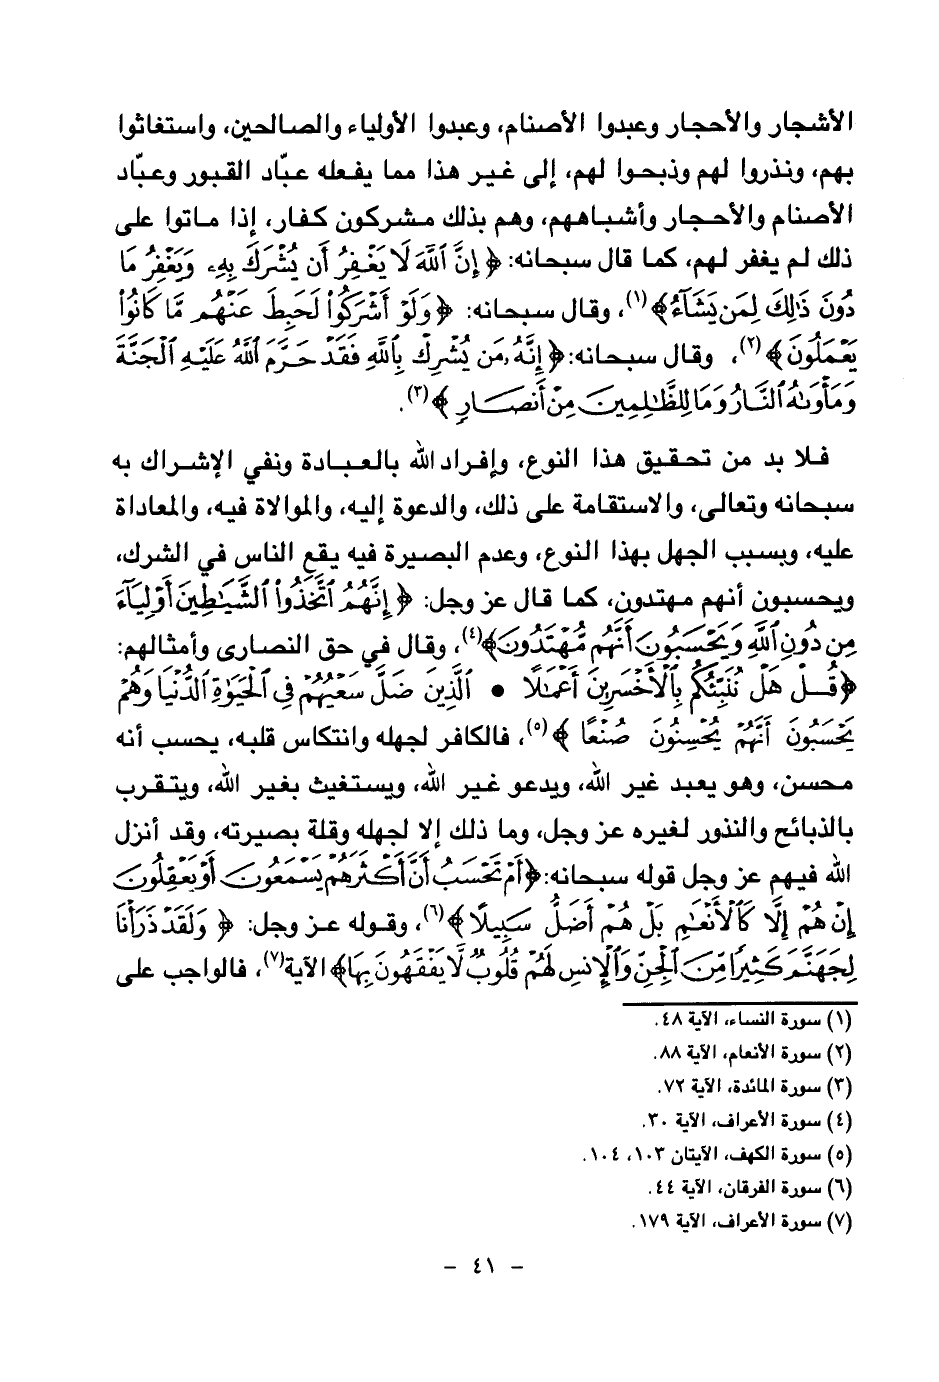 الأشجار والأحجار وعبدوا الأصنام، وعبدوا الأولياء والصالحين، واستغاثوا
بهم، ونذروا لهم وذبحوا لهم، إلى غير هذا مما يفعله عبّاد القبور وعبّاد
الأصنام والأحجار وأشباههم، وهم بذلك مشركون كفار، إذا ماتوا على
ذلك لم يغفر لهم، كما قال سبحانه: ﴿إِنَّ ٱللَّهَ لَا يَغْفِرُ أَن يُشْرَكَ بِهِۦ وَيَغْفِرُ مَا
دُونَ ذَٰلِكَ لِمَن يَشَآءُ﴾(١)، وقال سبحانه: ﴿وَلَوْ أَشْرَكُوا۟ لَحَبِطَ عَنْهُم مَّا كَانُوا۟
يَعْمَلُونَ﴾(٢)، وقال سبحانه: ﴿إِنَّهُۥ مَن يُشْرِكْ بِٱللَّهِ فَقَدْ حَرَّمَ ٱللَّهُ عَلَيْهِ ٱلْجَنَّةَ
وَمَأْوَىٰهُ ٱلنَّارُ وَمَا لِلظَّٰلِمِينَ مِنْ أَنصَارٍ﴾(٣).
فلا بد من تحقيق هذا النوع، وإفراد الله بالعبادة ونفي الإشراك به
سبحانه وتعالى، والاستقامة على ذلك، والدعوة إليه، والموالاة فيه، والمعاداة
عليه، وبسبب الجهل بهذا النوع، وعدم البصيرة فيه يقع الناس في الشرك،
ويحسبون أنهم مهتدون، كما قال عز وجل: ﴿إِنَّهُمُ ٱتَّخَذُوا۟ ٱلشَّيَٰطِينَ أَوْلِيَآءَ
مِن دُونِ ٱللَّهِ وَيَحْسَبُونَ أَنَّهُم مُّهْتَدُونَ﴾(٤)، وقال في حق النصارى وأمثالهم:
﴿قُلْ هَلْ نُنَبِّئُكُم بِٱلْأَخْسَرِينَ أَعْمَٰلًا • ٱلَّذِينَ ضَلَّ سَعْيُهُمْ فِى ٱلْحَيَوٰةِ ٱلدُّنْيَا وَهُمْ
يَحْسَبُونَ أَنَّهُمْ يُحْسِنُونَ صُنْعًا﴾(٥)، فالكافر لجهله وانتكاس قلبه، يحسب أنه
محسن، وهو يعبد غير الله، ويدعو غير الله، ويستغيث بغير الله، ويتقرب
بالذبائح والنذور لغيره عز وجل، وما ذلك إلا لجهله وقلة بصيرته، وقد أنزل
الله فيهم عز وجل قوله سبحانه: ﴿أَمْ تَحْسَبُ أَنَّ أَكْثَرَهُمْ يَسْمَعُونَ أَوْ يَعْقِلُونَ
إِنْ هُمْ إِلَّا كَٱلْأَنْعَٰمِ بَلْ هُمْ أَضَلُّ سَبِيلًا﴾(٦)، وقوله عز وجل: ﴿وَلَقَدْ ذَرَأْنَا
لِجَهَنَّمَ كَثِيرًا مِّنَ ٱلْجِنِّ وَٱلْإِنسِ لَهُمْ قُلُوبٌ لَّا يَفْقَهُونَ بِهَا﴾ الآية(٧)، فالواجب على
(١) سورة النساء، الآية ٤٨.
(٢) سورة الأنعام، الآية ٨٨.
(٣) سورة المائدة، الآية ٧٢.
(٤) سورة الأعراف، الآية ٣٠.
(٥) سورة الكهف، الآيتان ١٠٣، ١٠٤.
(٦) سورة الفرقان، الآية ٤٤.
(٧) سورة الأعراف، الآية ١٧٩.
- ٤١ -